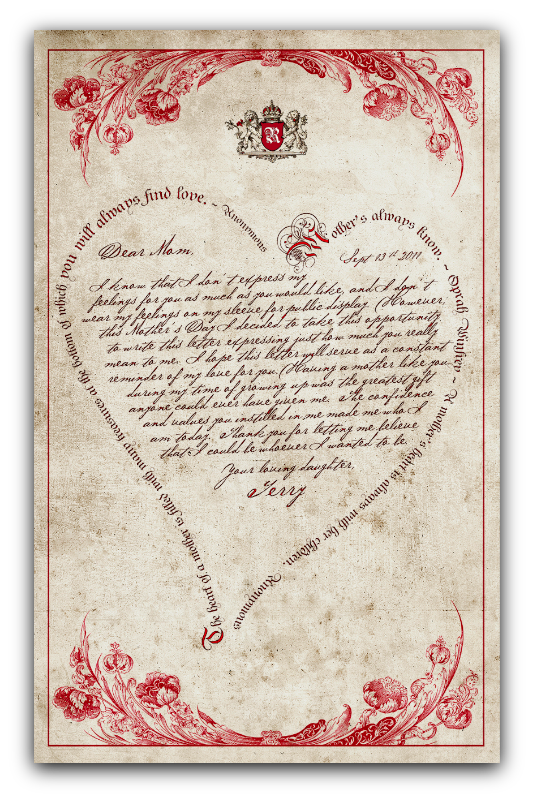 R
The heart of a mother is filled with many treasures at the bottom of which you will always find love. ~ Anonymous
Mother's always know. ~ Oprah Winfrey ~ A mother's heart is always with her children. Anonymous
Dear Mom,
Sept 13th 2011
I know that I don't express my
feelings for you as much as you would like, and I don't
wear my feelings on my sleeve for public display. However,
this Mother's Day I decided to take this opportunity
to write this letter expressing just how much you really
mean to me. I hope this letter will serve as a constant
reminder of my love for you. Having a mother like you
during my time of growing up was the greatest gift
anyone could ever have given me. The confidence
and values you instilled in me made me who I
am today. Thank you for letting me believe
that I could be whoever I wanted to be.
Your loving daughter,
Terry